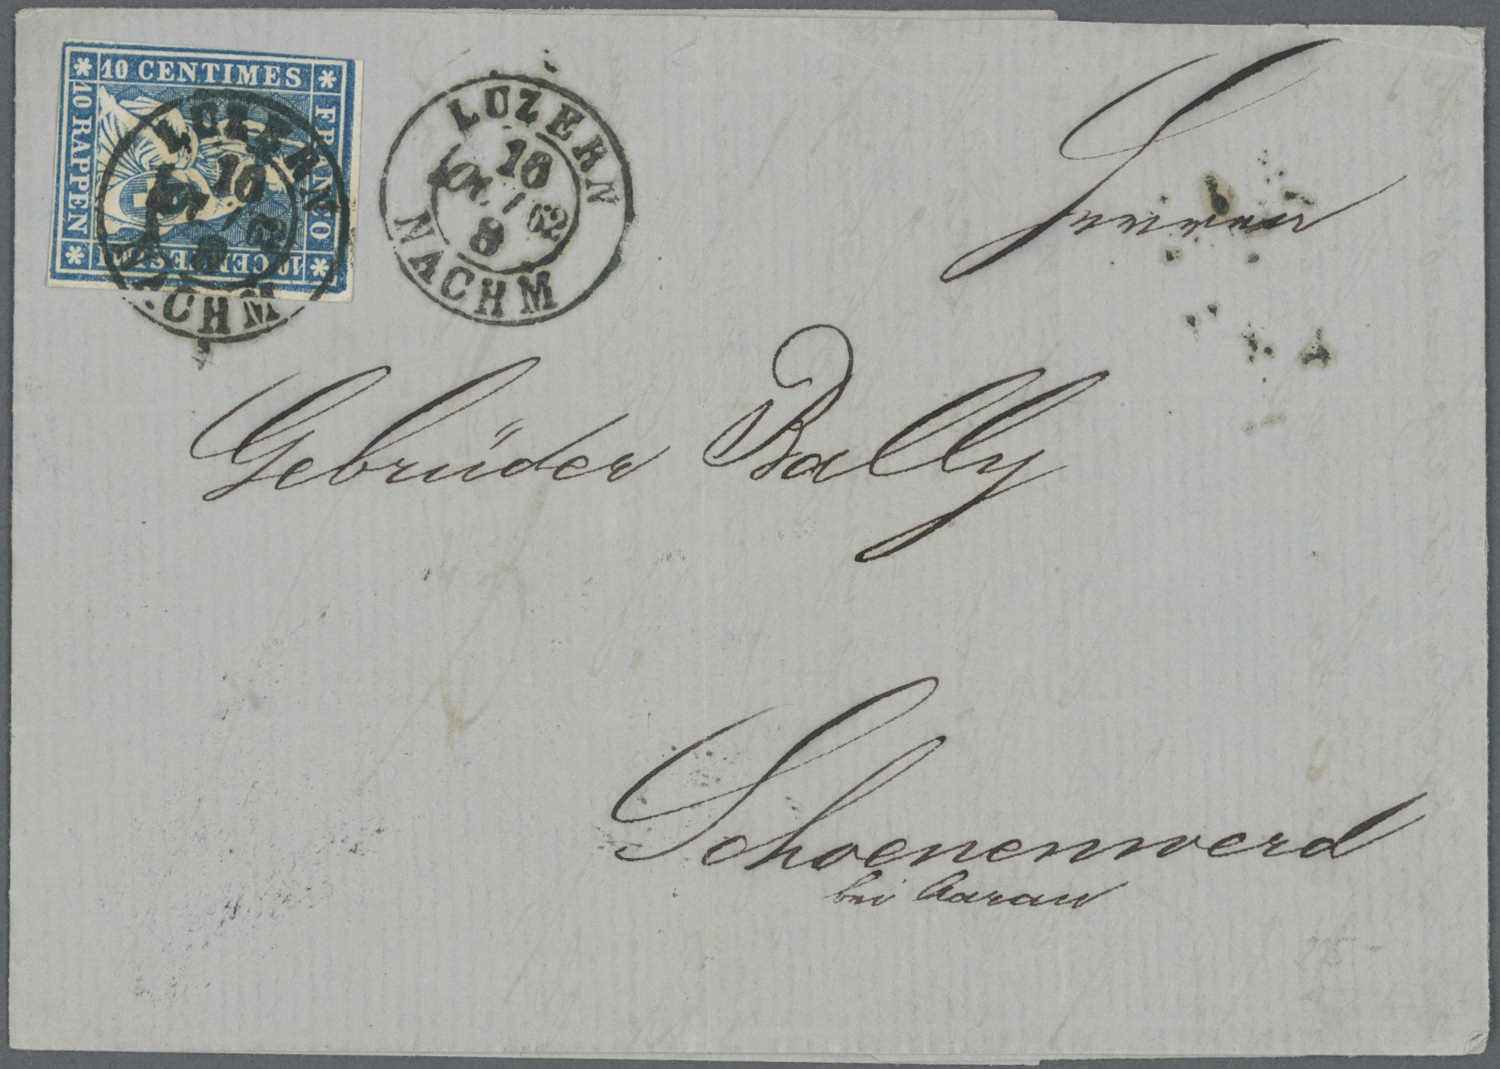 10 CENTIMES
10 RAPPEN
FRANCO
10 CENTESIMI
LUZERN
10
62
8
NACHM
LUZERN
10
62
8
NACHM
Herren
Gebrüder Bally
Schoenenwerd
bei Aarau